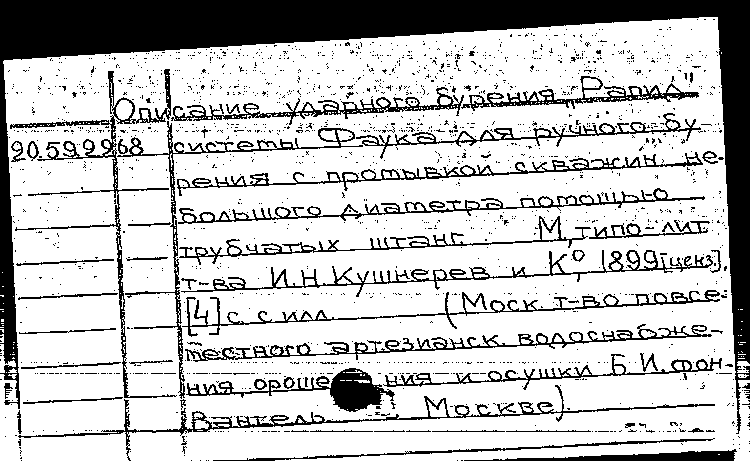 Описание ударного бурения „Рапид"
20.59.2968 системы Фаука для ручного бу-
рения с промывкой скважин не-
большого диаметра помощью
трубчатых штанг. М, типо-лит
т-ва И.Н.Кушнерев и К°, 1899 [ценз],
[4] с. с илл. (Моск. т-во повсе-
местного артезианск. водоснабже-
ния, орошения и осушки Б.И. фон-
Вангель Москве).